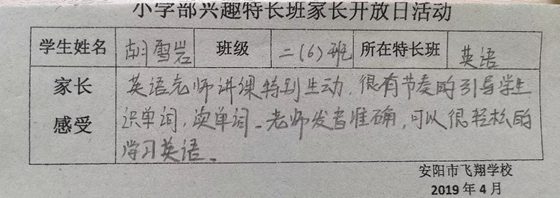 小学部兴趣特长班家长开放日活动
学生姓名 胡雪岩 班级 二(6)班 所在特长班 英语
家长 英语老师讲课特别生动,很有节奏的引导学生
感受 识单词,读单词。老师发音准确,可以很轻松的
学习英语。
安阳市飞翔学校
2019年4月